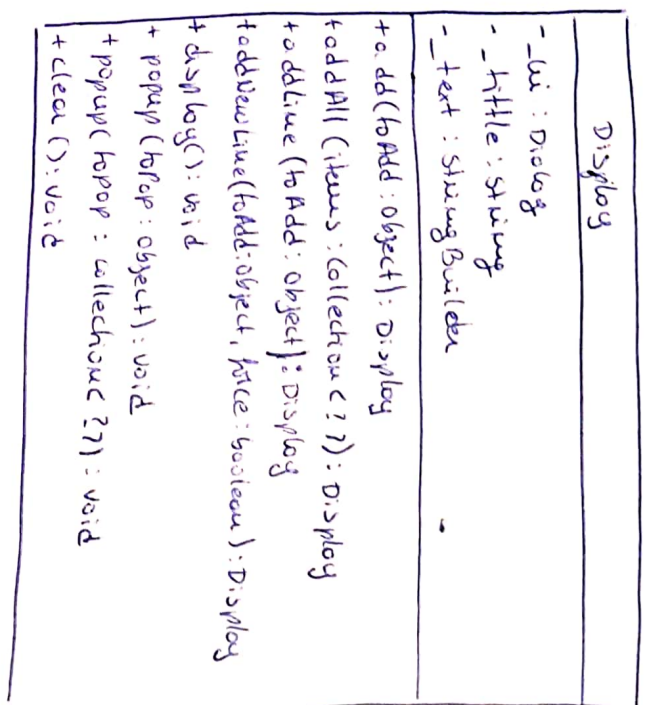 Display
- _ui : Dialog
- _tittle : String
- _text : StringBuilder
+ add(toAdd : Object) : Display
+ addAll (items : Collection<?>) : Display
+ addLine (toAdd : Object) : Display
+ addNewLine(toAdd : Object, force : boolean) : Display
+ display() : void
+ popup (toPop : Object) : void
+ popup( toPop : Collection<?>) : void
+ clear () : void